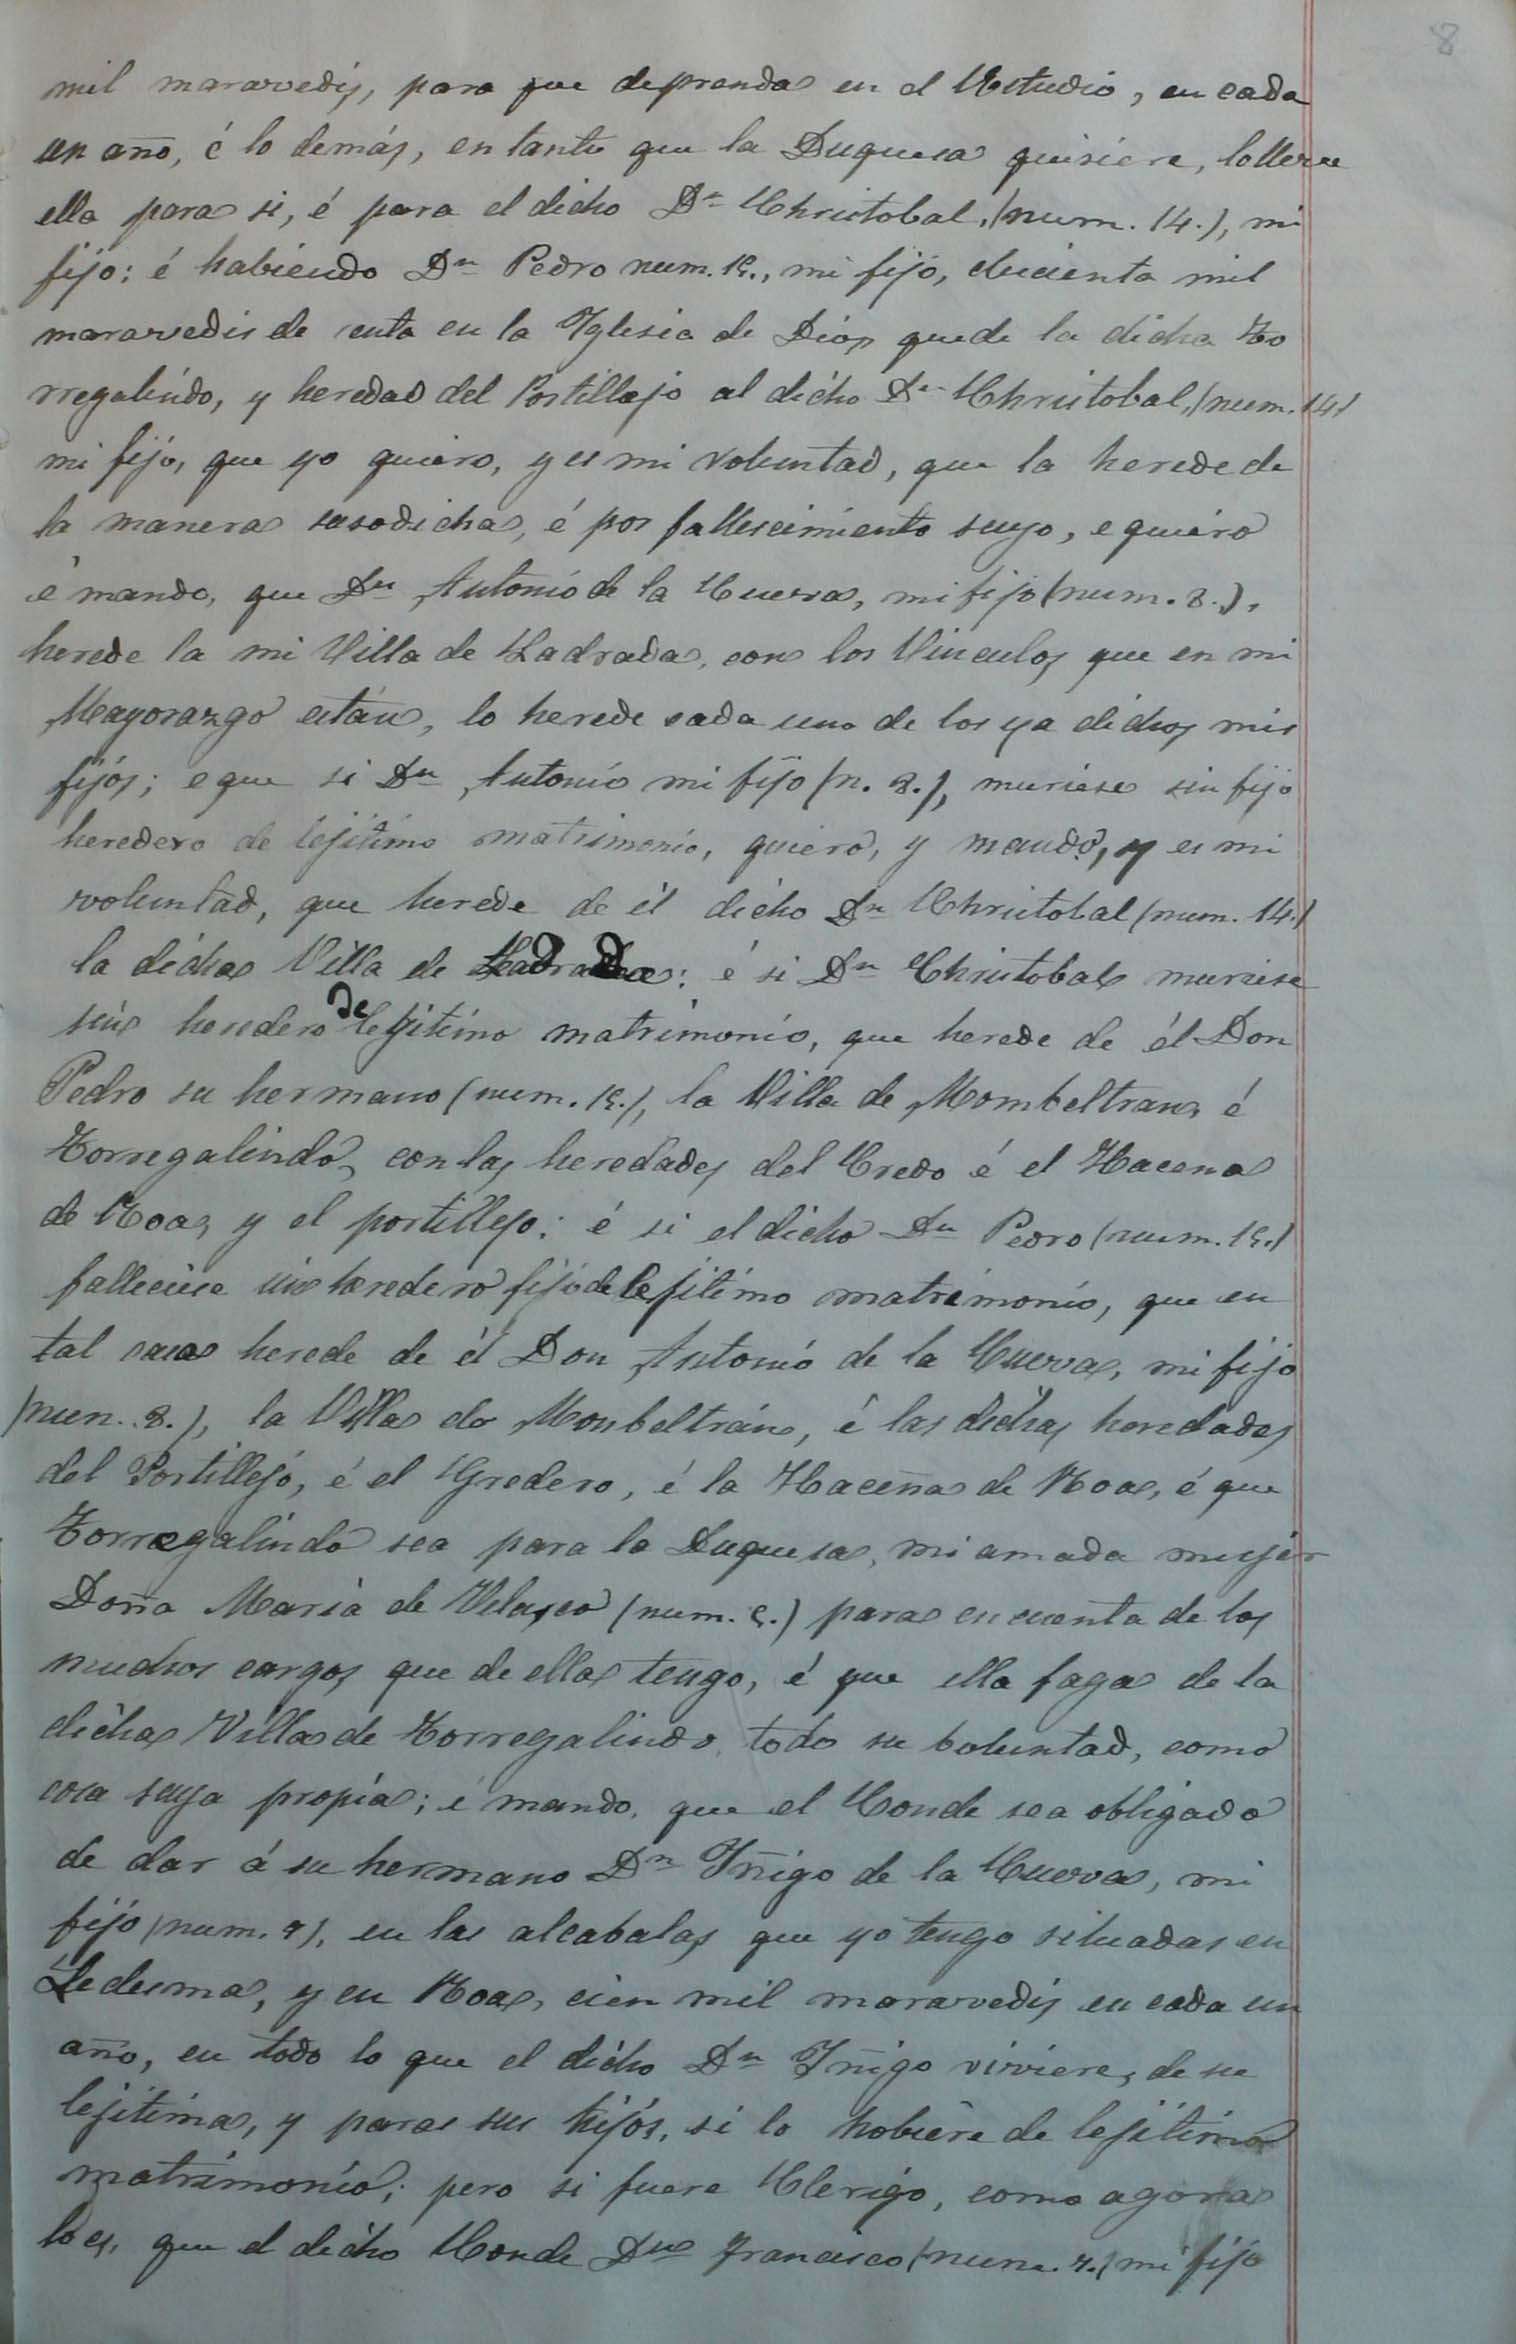 8
mil maravedis, para que deprenda en el Estudio, en cada
un año, é lo demás, en tanto que la Duquesa quisiere, lo lleve
ella para si, é para el dicho Dn Christobal, (num. 14.), mi
fijo; é habiendo Dn Pedro num. 15., mi fijo, ducienta mil
maravedis de renta en la Yglesia de Dios quede la dicha To
rregalindo, y heredad del Portillejo al dicho Dn Christobal, (num. 14)
mi fijo, que yo quiero, y es mi voluntad, que la herede de
la manera susodicha, é por fallescimiento suyo, e quiero
é mando, que Dn Antonio de la Cueva, mi fijo (num. 8.),
herede la mi Villa de Ladrada, con los Vinculos que en mi
Mayorazgo están, lo herede cada uno de los ya dichos mis
fijos; e que si Dn Antonio mi fijo (n. 8.), muriese sin fijo
heredero de lejitimo matrimonio, quiero, y mando, y es mi
voluntad, que herede de él dicho Dn Christobal (num. 14.)
la dicha Villa de Ladrada: é si Dn Christobal muriese
sin heredero de lejitimo matrimonio, que herede de él Don
Pedro su hermano (num. 15.), la Villa de Mombeltran, é
Torregalindo, con las heredades del Credo é el Hacena
de Roa, y el portillejo: é si el dicho Dn Pedro (num. 15.)
falleciese sin heredero fijo de lejitimo matrimonio, que en
tal caso herede de él Don Antonio de la Cueva, mi fijo
(num. 8.), la Villa de Monbeltrán, é las dichas heredades
del Portillejo, é el Gredero, é la Haceña de Roa, é que
Torregalindo sea para la Duquesa, mi amada mujer
Doña Maria de Velasco (num. 5.) para en cuenta de los
muchos cargos que de ella tengo, é que ella faga de la
dicha Villa de Torregalindo todo su boluntad, como
cosa suya propia; é mando, que el Conde sea obligado
de dar á su hermano Dn Yñigo de la Cueva, mi
fijo (num. 9), en las alcabalas que yo tengo situadas en
Ledesma, y en Roa, cien mil maravedis en cada un
año, en todo lo que el dicho Dn Yñigo viviere, de su
lejitima, y para sus hijos, si lo hobiere de lejitimo
matrimonio; pero si fuere Clerigo, como agora
lo es, que el dicho Conde Dn Francisco (num. 7.) mi fijo